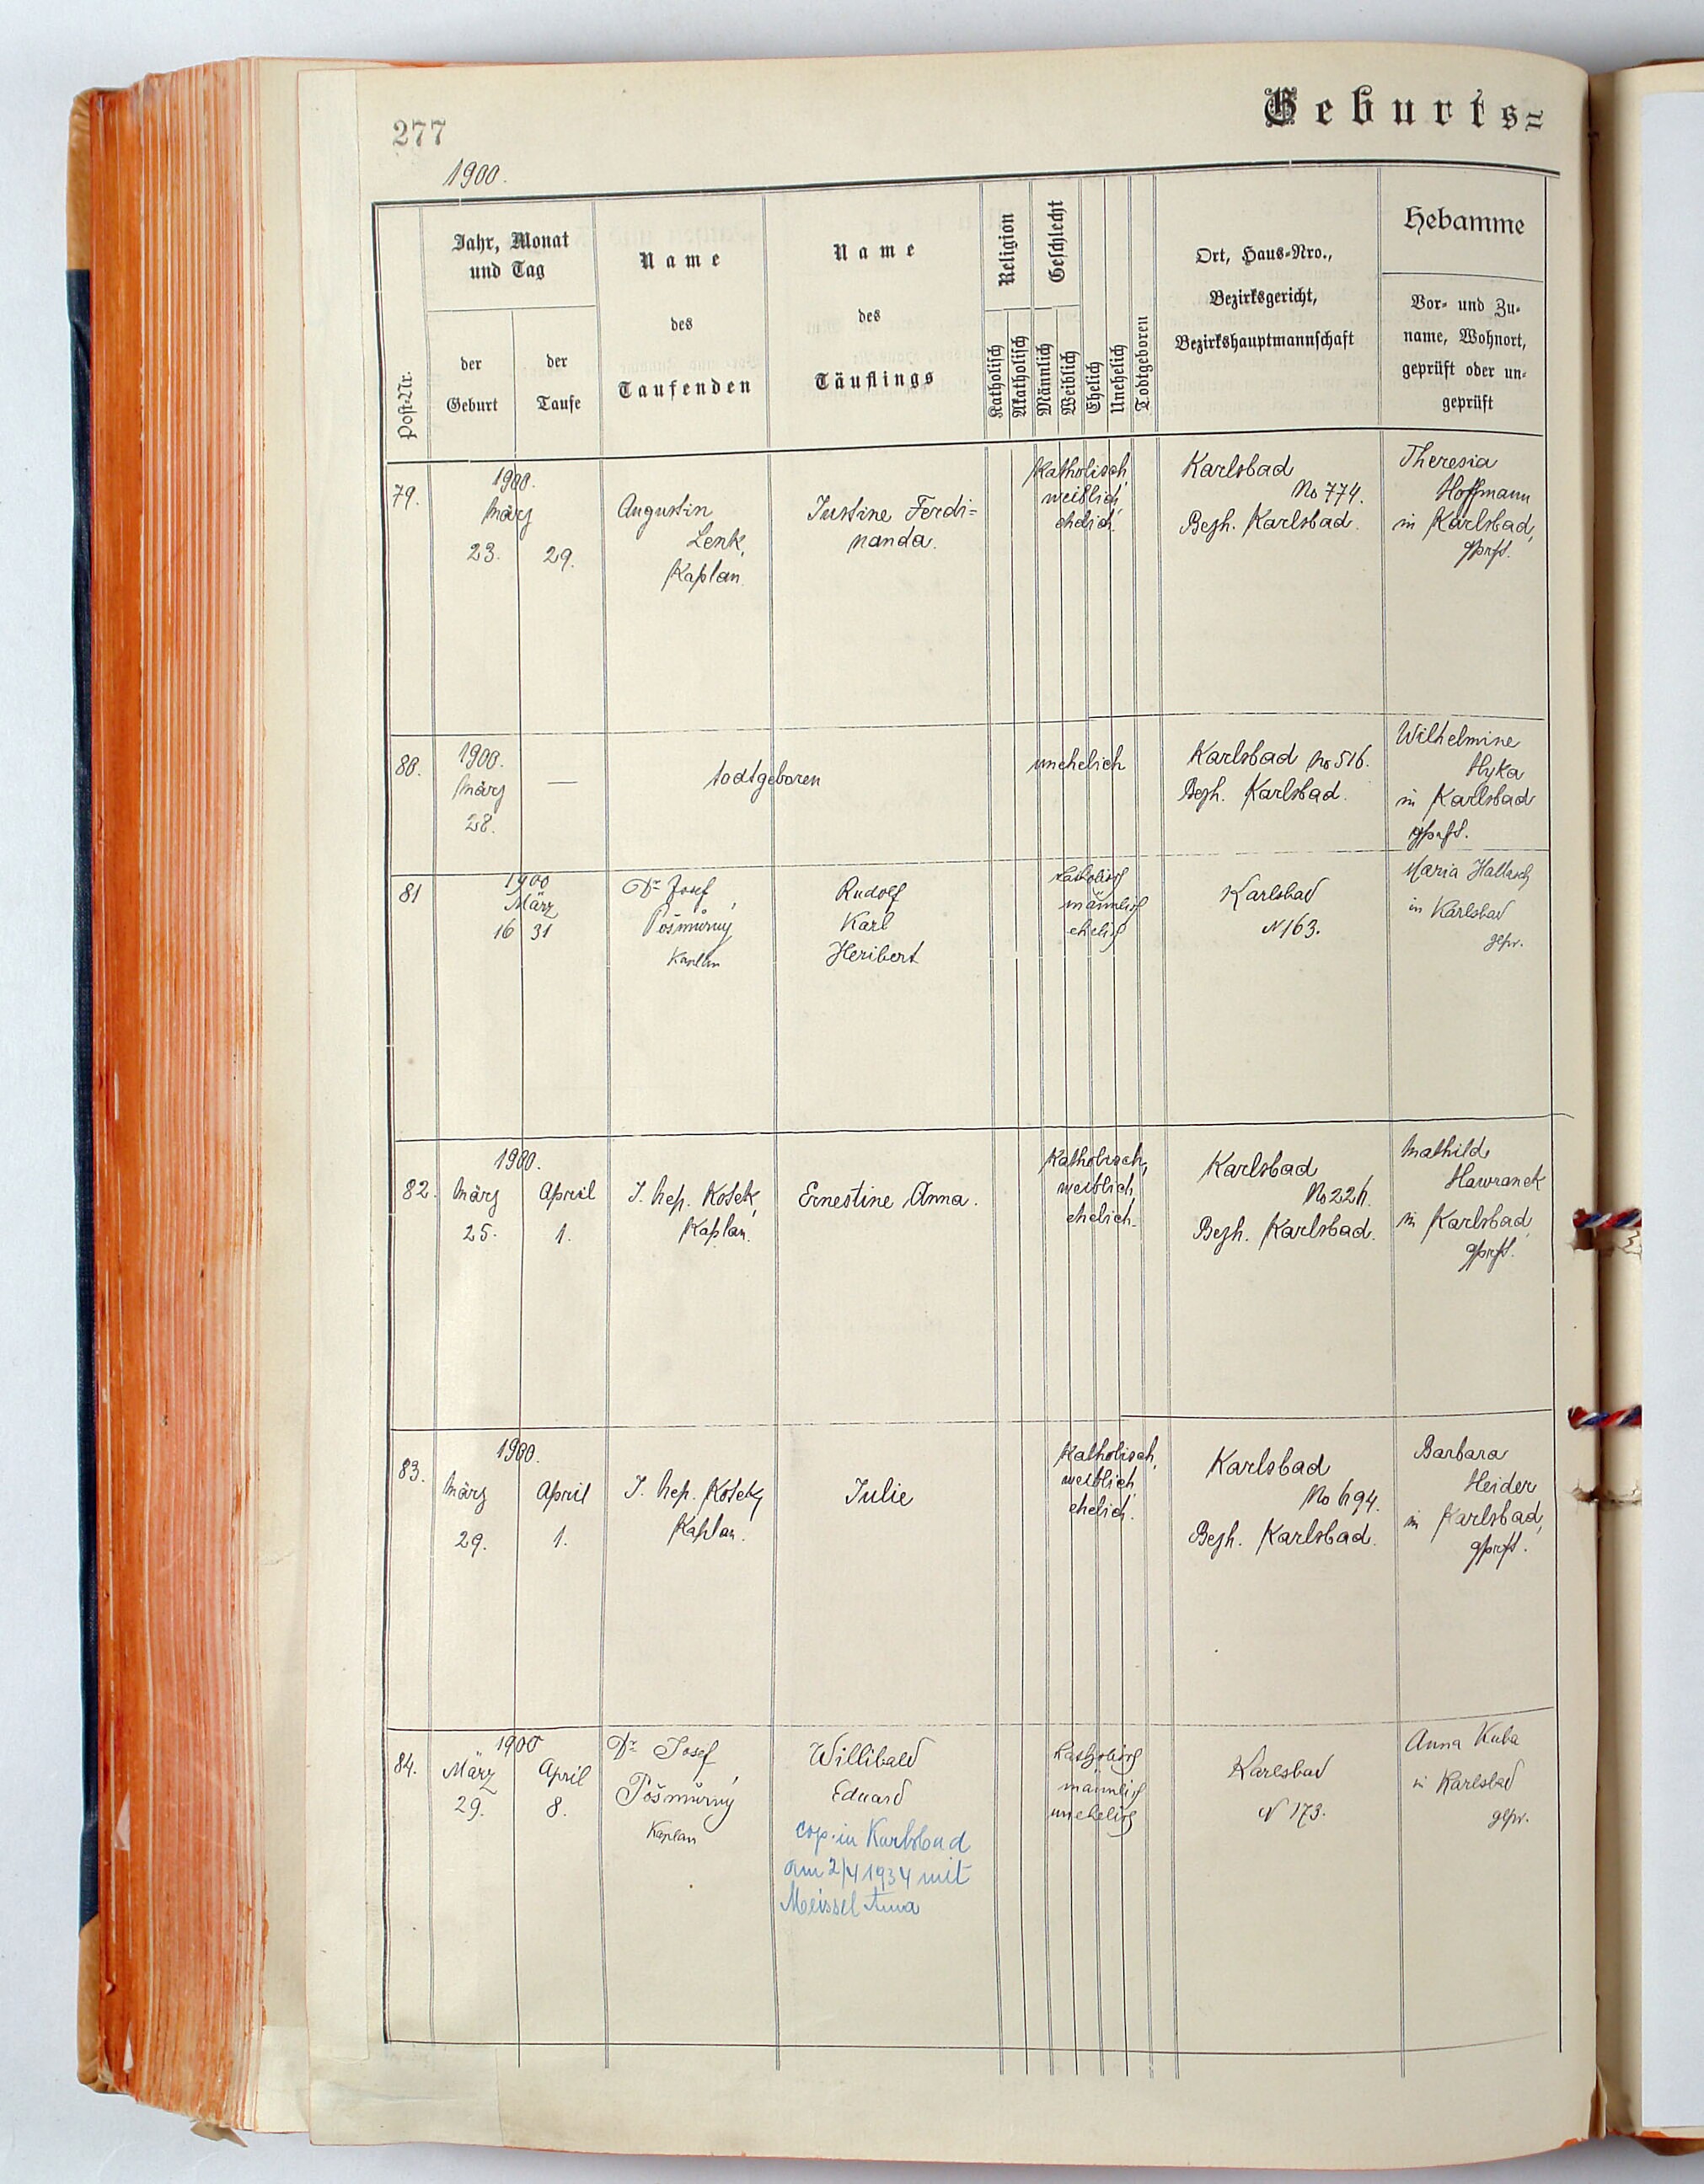 277
Geburts=
1900.
Post-Nr.
Jahr, Monat
und Tag
der
Geburt
der
Taufe
Name
des
Taufenden
Name
des
Täuflings
Religion
Katholisch
Akatholisch
Geschlecht
Männlich
Weiblich
Ehelich
Unehelich
Todtgeboren
Ort, Haus-Nro.,
Bezirksgericht,
Bezirkshauptmannschaft
Hebamme
Vor- und Zu-
name, Wohnort,
geprüft oder un-
geprüft
79.
1900.
März
23. 29.
Augustin
Lenk,
Kaplan.
Justine Ferdi=
nanda.
Katholisch,
weiblich,
ehelich.
Karlsbad
No 774.
Bezh. Karlsbad.
Theresia
Hoffmann
in Karlsbad,
gprft.
80.
1900.
März
28.
—
todtgeboren
unehelich
Karlsbad No 516.
Bezh. Karlsbad.
Wilhelmine
Hyka
in Karlsbad
gprft.
81
1900
März
16 31
Dr Josef
Pošmůrný
Kaplan
Rudolf
Karl
Heribert
katholisch
männlich
ehelich
Karlsbad
N 163.
Maria Hallasch
in Karlsbad
gepr.
82.
1900.
März April
25. 1.
J. Nep. Kosek,
Kaplan.
Ernestine Anna.
Katholisch,
weiblich,
ehelich.
Karlsbad
Bezh. Karlsbad.
Mathilde
Hawranek
in Karlsbad,
gprft.
83.
1900.
März April
29. 1.
J. Nep. Kosek,
Kaplan.
Julie
Katholisch,
weiblich,
ehelich.
Karlsbad
No 694.
Bezh. Karlsbad.
Barbara
Heider
in Karlsbad,
gprft.
84.
1900
März April
29. 8.
Dr Josef
Pošmůrný
Kaplan
Willibald
Eduard
cop. in Karlsbad
am 2/4 1934 mit
Meissel Anna
katholisch
männlich
unehelich
Karlsbad
N 173.
Anna Kuba
in Karlsbad
gepr.